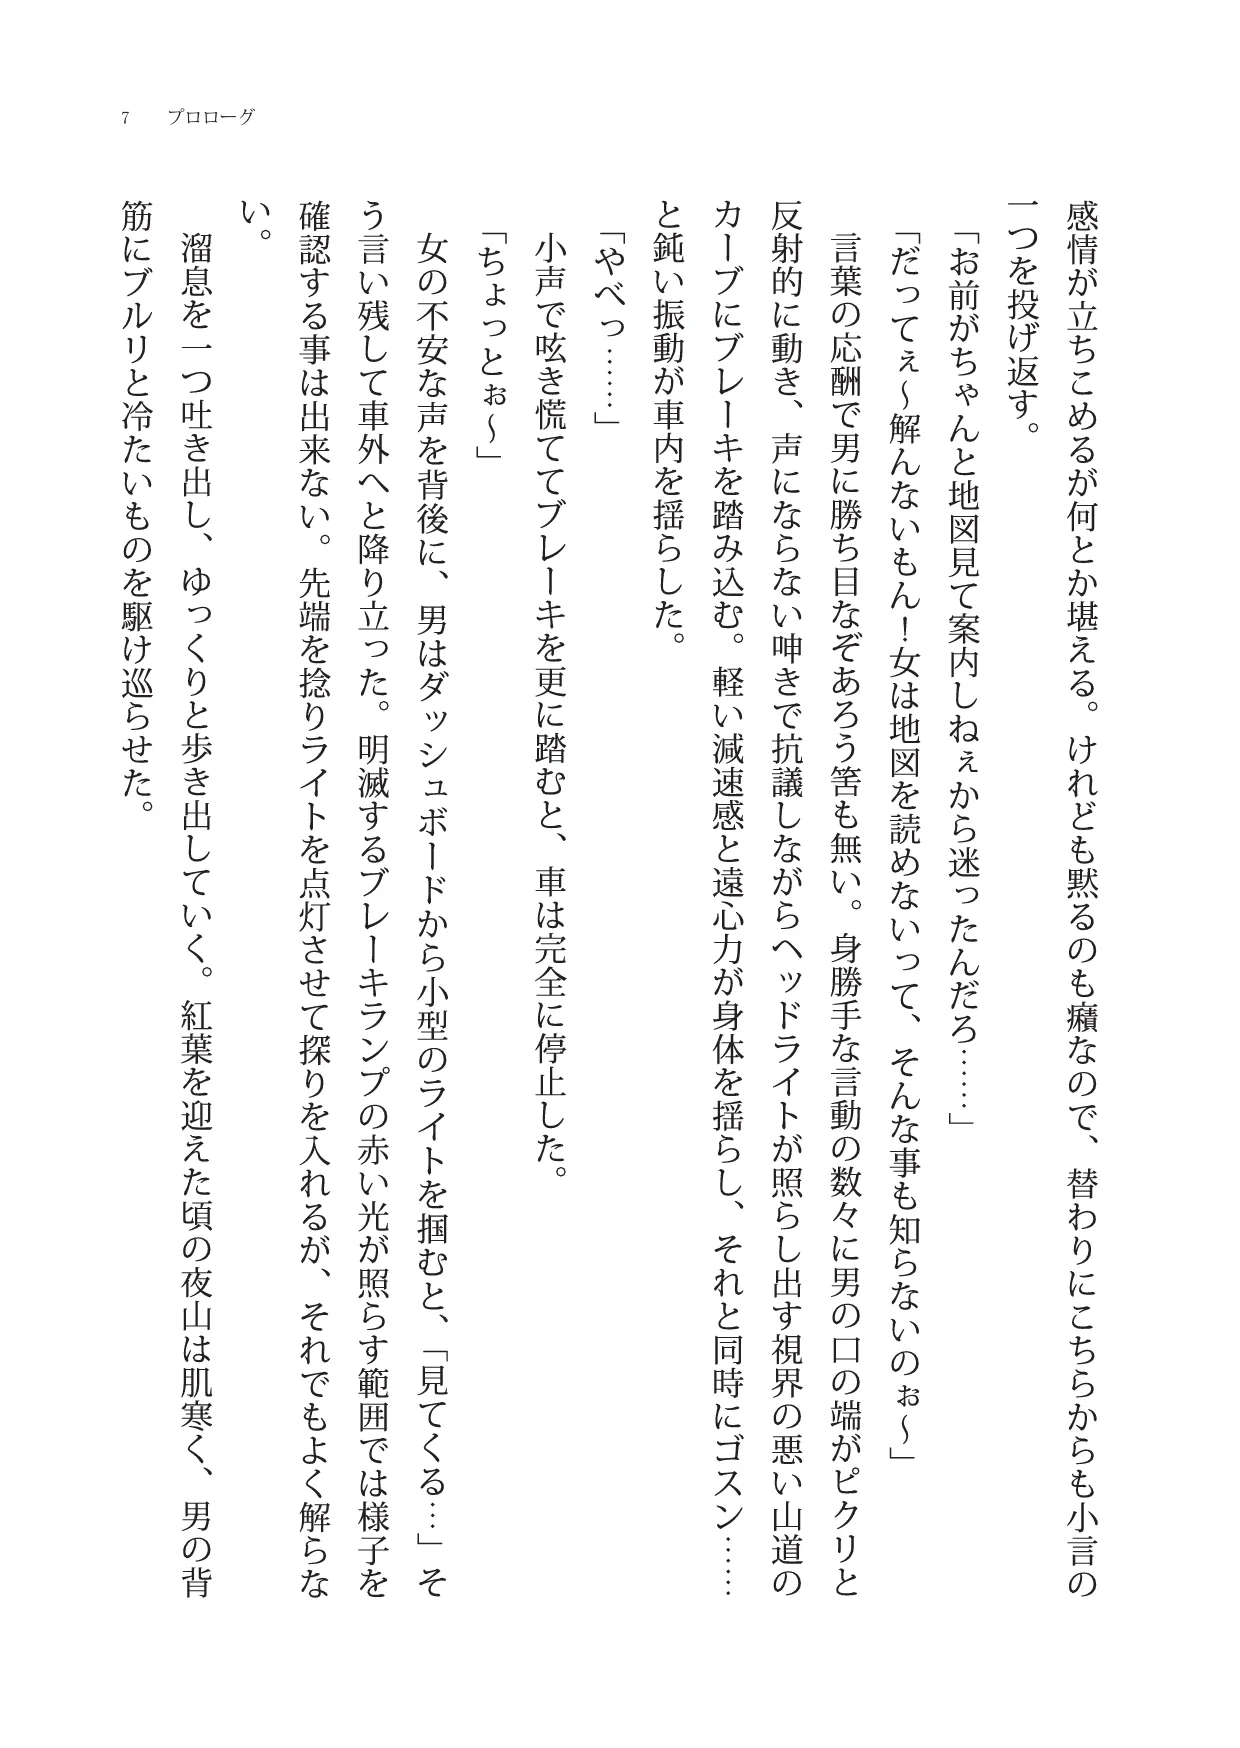 7　プロローグ
感情が立ちこめるが何とか堪える。けれども黙るのも癪なので、替わりにこちらからも小言の
一つを投げ返す。
「お前がちゃんと地図見て案内しねぇから迷ったんだろ……」
「だってぇ〜解んないもん！女は地図を読めないって、そんな事も知らないのぉ〜」
言葉の応酬で男に勝ち目なぞあろう筈も無い。身勝手な言動の数々に男の口の端がピクリと
反射的に動き、声にならない呻きで抗議しながらヘッドライトが照らし出す視界の悪い山道の
カーブにブレーキを踏み込む。軽い減速感と遠心力が身体を揺らし、それと同時にゴスン……
と鈍い振動が車内を揺らした。
「やべっ……」
小声で呟き慌ててブレーキを更に踏むと、車は完全に停止した。
「ちょっとぉ〜」
女の不安な声を背後に、男はダッシュボードから小型のライトを掴むと、「見てくる…」そ
う言い残して車外へと降り立った。明滅するブレーキランプの赤い光が照らす範囲では様子を
確認する事は出来ない。先端を捻りライトを点灯させて探りを入れるが、それでもよく解らな
い。
溜息を一つ吐き出し、ゆっくりと歩き出していく。紅葉を迎えた頃の夜山は肌寒く、男の背
筋にブルリと冷たいものを駆け巡らせた。